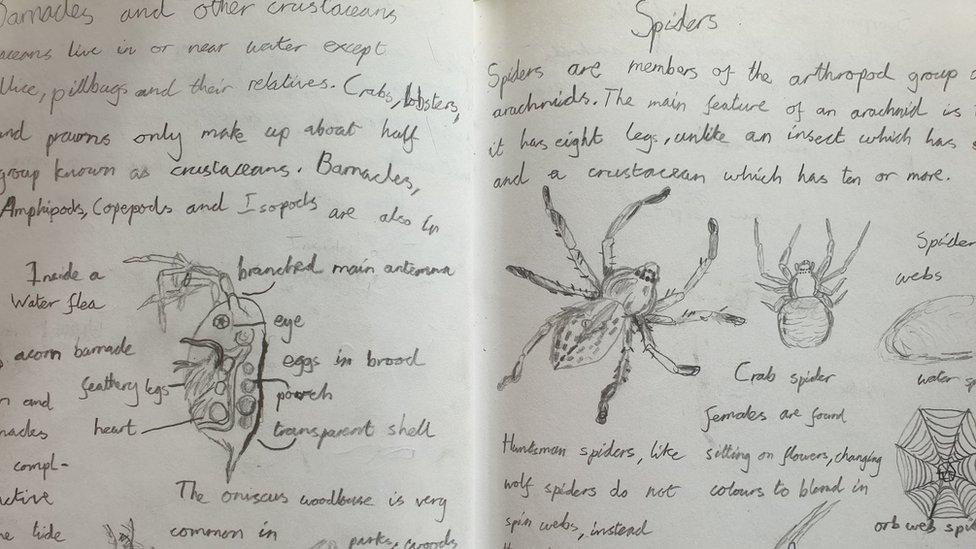 Barnacles and other crustaceans
live in or near water except
pillbugs and their relatives. Crabs, lobsters,
and prawns only make up about half
group known as crustaceans. Barnacles,
Amphipods, Copepods and Isopods are also in
Inside a
Water flea
branched main antenna
eye
eggs in brood
pouch
transparent shell
feathery legs
heart
acorn barnacle
and
compl-
tide
The oniscus woodlouse is very
common in parks, woods
Spiders
Spiders are members of the arthropod group
arachnids. The main feature of an arachnid is
it has eight legs, unlike an insect which has
and a crustacean which has ten or more.
Spider
webs
Crab spider
females are found
sitting on flowers, changing
colours to blend in
water
Huntsman spiders, like
wolf spiders do not
spin webs, instead
orb web